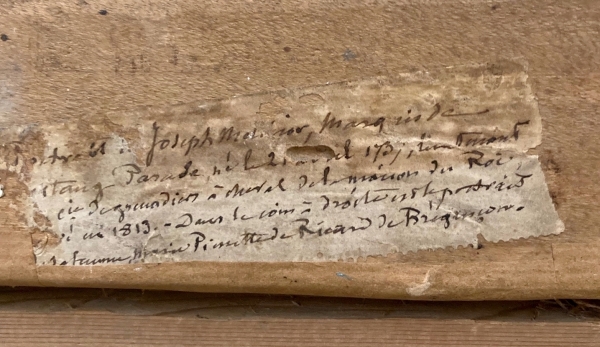 Portrait de Joseph Melchior, Marquis de
étang Parade, né le 21 avril 173, lieutenant
cie de grenadiers à cheval de la maison du Roi,
é en 1813. - Dans le coin à droite est le portrait
de sa femme, Marie Pierrette de Ricard de Brégançon.